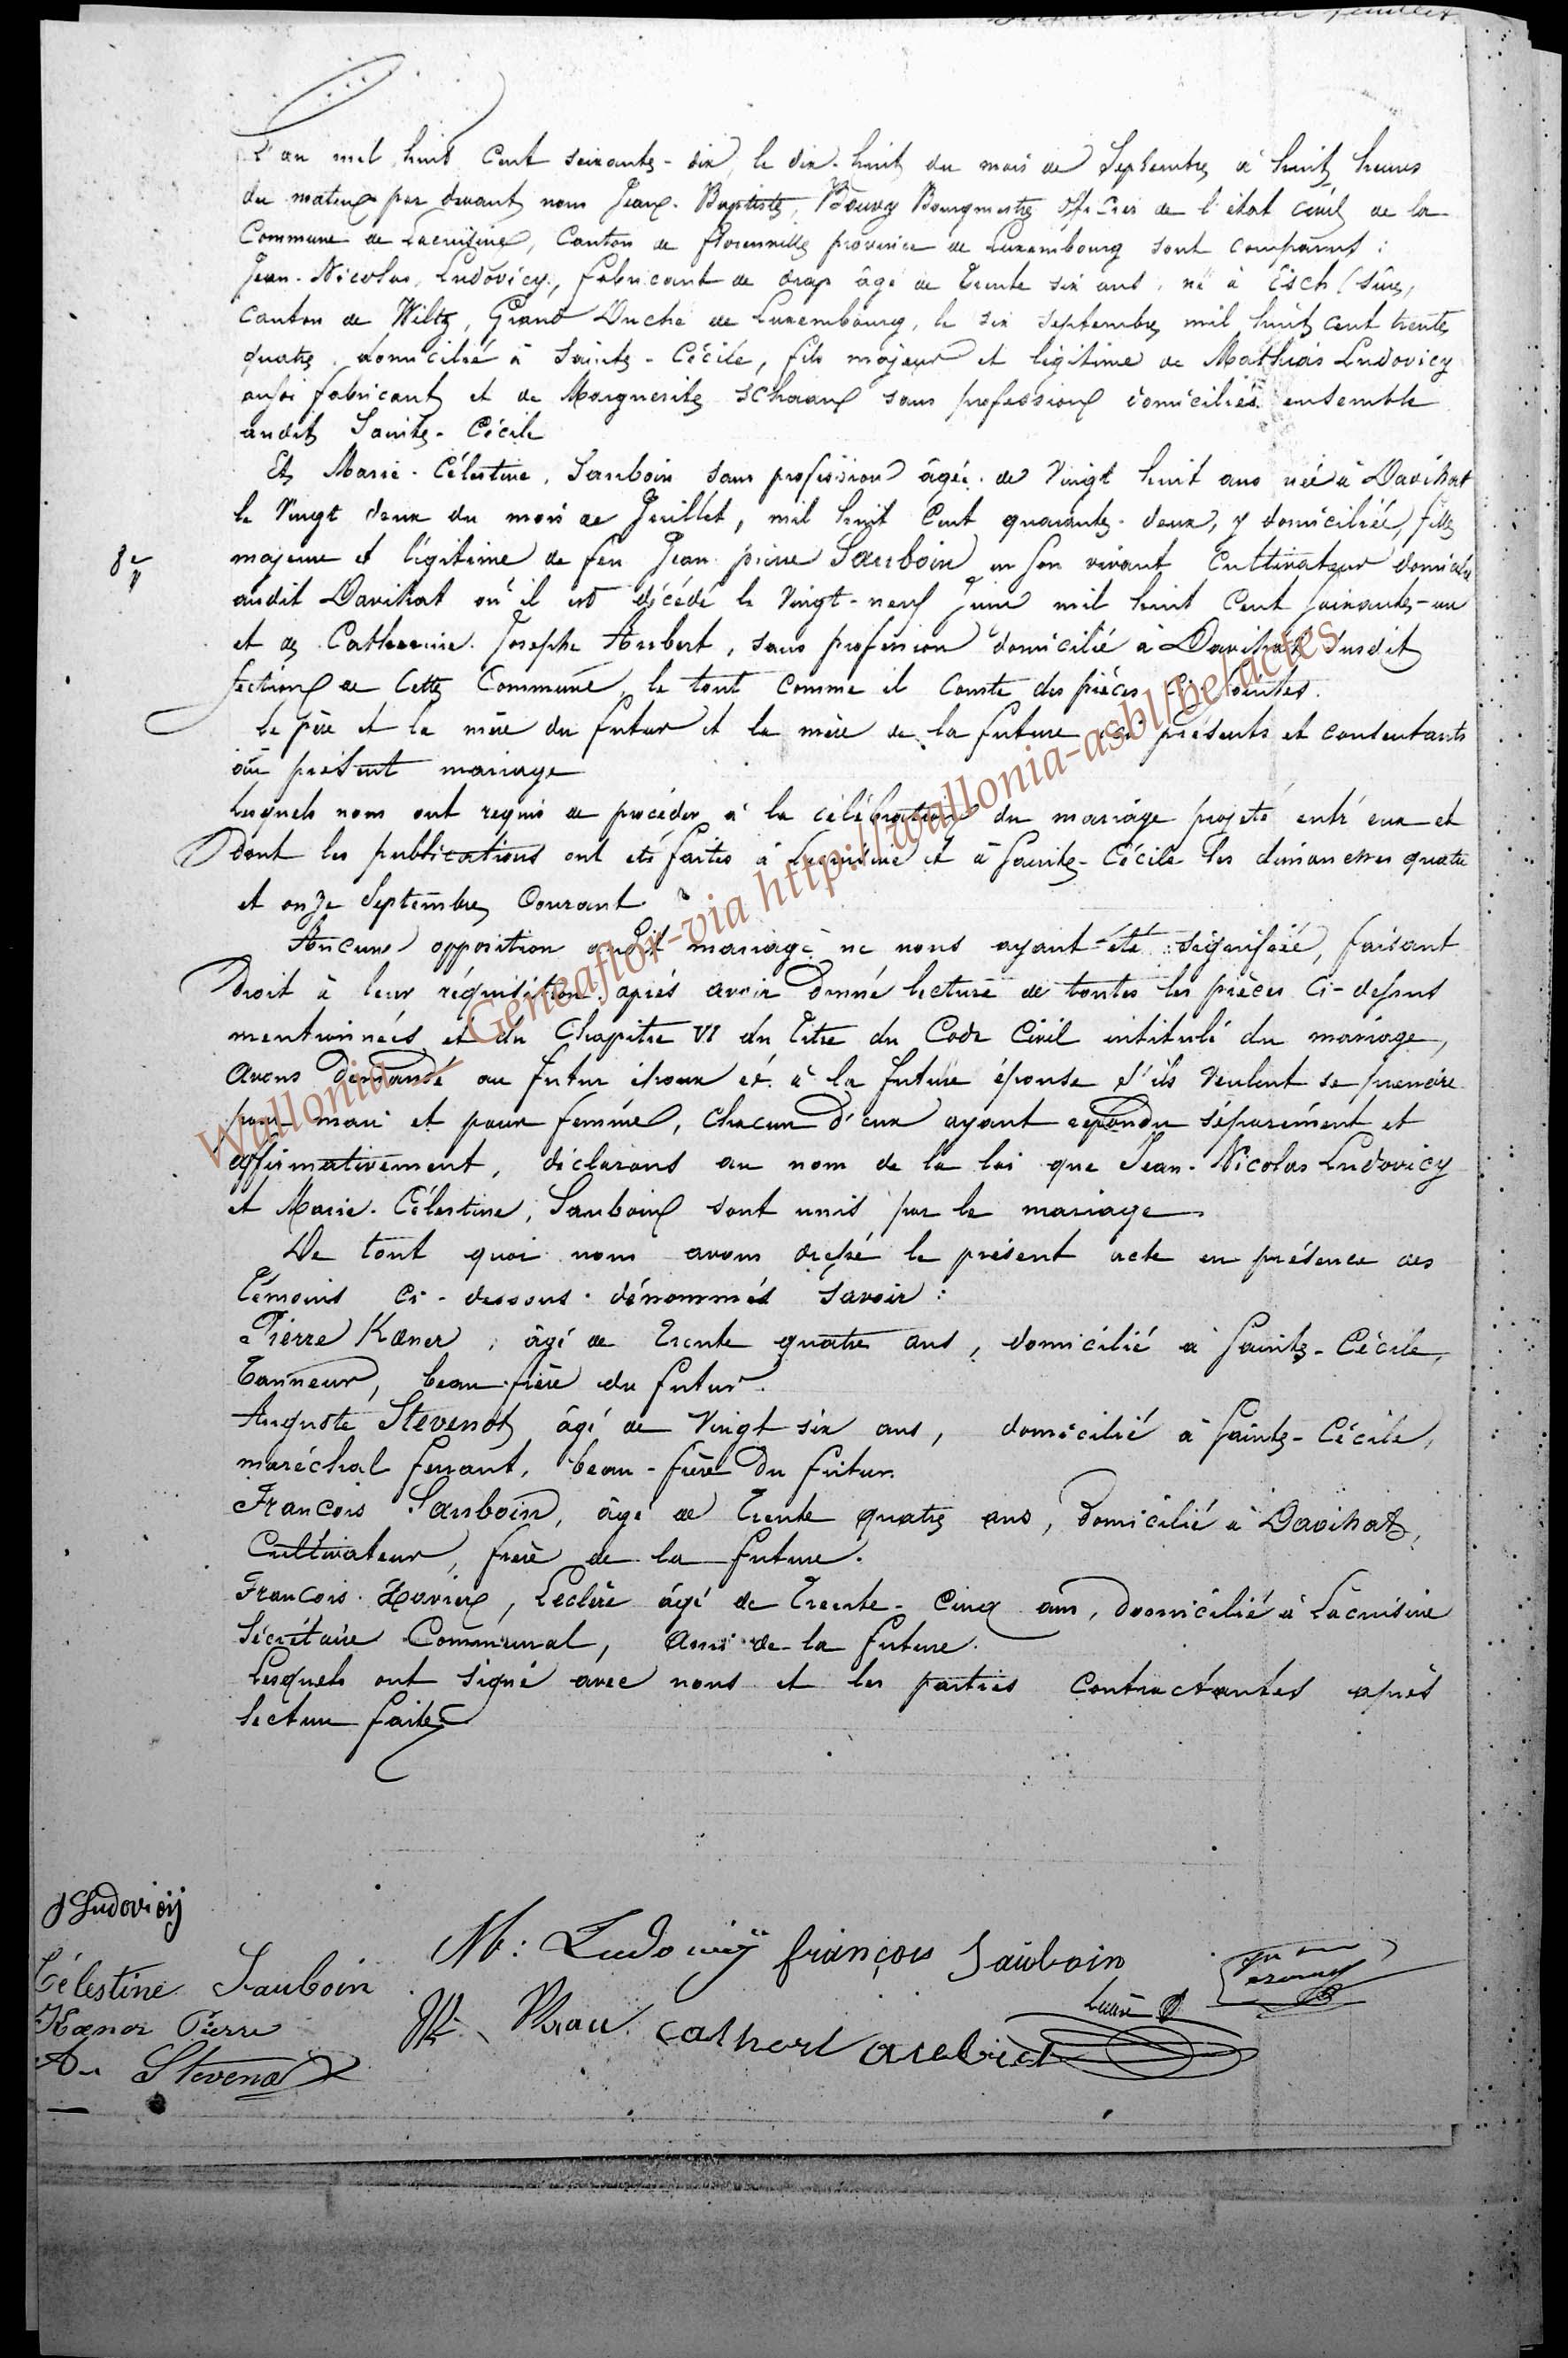 L'an mil huit cent soixante-dix, le dix-huit du mois de Septembre à huit heures
du matin par devant nous Jean-Baptiste, Bouvy Bourgmestre officier de l'état civil de la
Commune de Lacuisine, Canton de florenville province de Luxembourg sont comparus :
Jean-Nicolas, Ludovicy, fabricant de drap âgé de trente six ans, né à Esch / sûre,
Canton de Wiltz, Grand Duché de Luxembourg, le six septembre mil huit cent trente
quatre, domicilié à Sainte-Cécile, fils majeur et légitime de Mathias Ludovicy
aussi fabricant et de Marguerite Schaan sans profession domiciliés ensemble
audit Sainte-Cécile
Et Marie-Célestine, Sauboin sans profession âgée de vingt huit ans née à Davihat
le vingt deux du mois de Juillet, mil huit cent quarante-deux, y domiciliée, fille
8e majeure et légitime de feu Jean pierre Sauboin en son vivant Cultivateur domicilié
audit Davihat où il est décédé le vingt-neuf Juin mil huit cent soixante-un
et de Catherine Josephe Aubert, sans profession domicilié à Davihat susdit
section de cette Commune, le tout comme il conste des pièces ci jointes.
Le père et la mère du futur et la mère de la future ici présents et consentants
au présent mariage
Lesquels nous ont requis de procéder à la célébration du mariage projeté entr'eux et
dont les publications ont été faites à Lacuisine et à Sainte-Cécile les dimanches quatre
et onze Septembre courant
Aucune opposition audit mariage ne nous ayant été signifiée, faisant
Droit à leur réquisition, après avoir donné lecture de toutes les pièces ci-dessus
mentionnées et du Chapitre VI du titre du Code Civil intitulé du mariage,
avons demandé au futur époux et à la future épouse s'ils veulent se prendre
pour mari et pour femme, chacun d'eux ayant répondu séparément et
affirmativement, déclarons au nom de la loi que Jean-Nicolas Ludovicy
et Marie-Célestine, Sauboin sont unis par le mariage
De tout quoi nous avons dressé le présent acte en présence des
témoins ci-dessous dénommés savoir :
Pierre Kæner, âgé de trente quatre ans, domicilié à Sainte-Cécile,
tanneur, beau-frère du futur.
Auguste Stevenot âgé de vingt six ans, domicilié à Sainte-Cécile,
maréchal ferrant, beau-frère du futur.
François Sauboin, âgé de trente quatre ans, domicilié à Davihat,
Cultivateur, frère de la future.
François-Xavier, Leclère âgé de trente-cinq ans, domicilié à Lacuisine
Sécrétaire Communal, ami de la future.
Lesquels ont signé avec nous et les parties contractantes après
lecture faite
J Ludovicy
M: Ludovicÿ françois Sauboin
Célestine Sauboin
Kæner Pierre
Au Stevenot
Wallonia - Geneaflor-via http://wallonia-asbl/be/actes